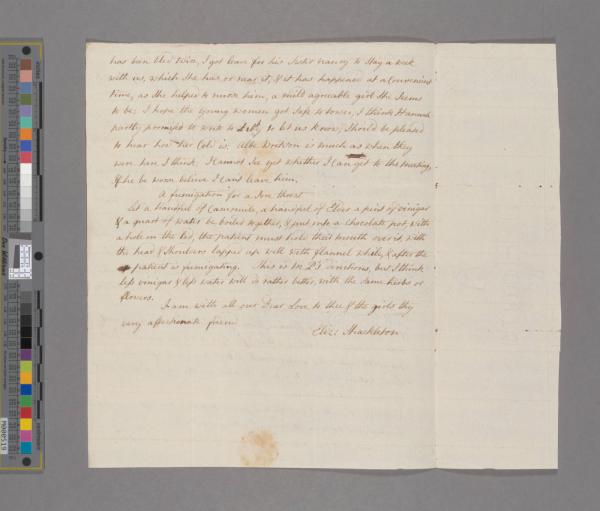 has been bled twice, I got leave for his Sister nancy to stay a week
with us, which She has or near it, & it has happened at a Convenient
time, as She helped to nurse him, a mild agreeable girl She Seems
to be; I hope the young women got Safe to I think Hannah
partly promised to write to to let us know, Should be pleased
to hear how her Cold is: Abe is much as when they
were here I think. I cannot See yet whether I can get to the meeting,
If he be worse believe I cant leave him.
A fumigation for a Sore throat
Let a handful of Camomile, a handful of Elder a pint of vinegar
& a quart of water be boiled together, & put into a Chocolate pot, with
a hole in the lid, the patient must hold their mouth over it, with
the head & Shoulders lapped up well with flannel while, & after the
patient is fumigating. This is directions, but I think
less vinegar & less water will do rather better, with the same herbs or
flowers.
I am with all our Dear Love to thee & the girls thy
very affectionate friend
Eliz: Shackleton
M000519